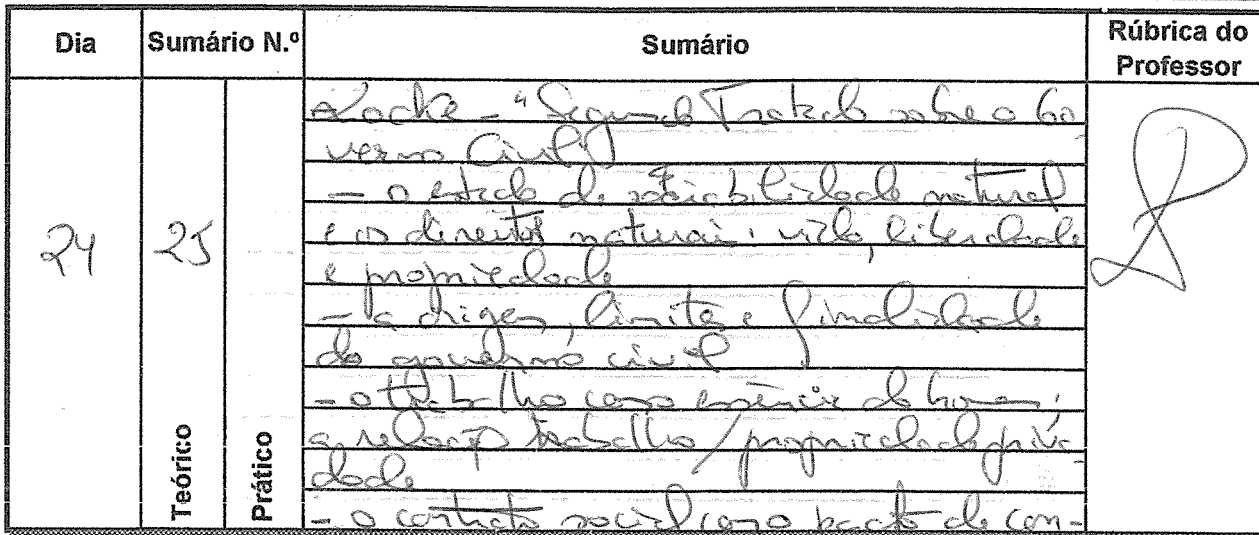 Dia Sumário N.º Sumário Rúbrica do Professor
24 25
Teórico Prático
Locke - "Segundo Tratado sobre o Go
verno Civil"
- o estado de sociabilidade natural
e os direitos naturais: vida, liberdade
e propriedade
- a origem, limites e finalidade
do governo civil
- o trabalho como essência do homem;
a relação trabalho / propriedade priva
dade
- o contrato social como pacto de con-